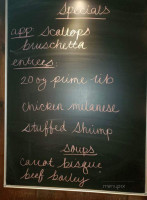 Specials
app scallops
bruschetta
entrees:
20 oz prime rib
chicken milanese
stuffed shrimp
soups
carrot bisque
beef barley